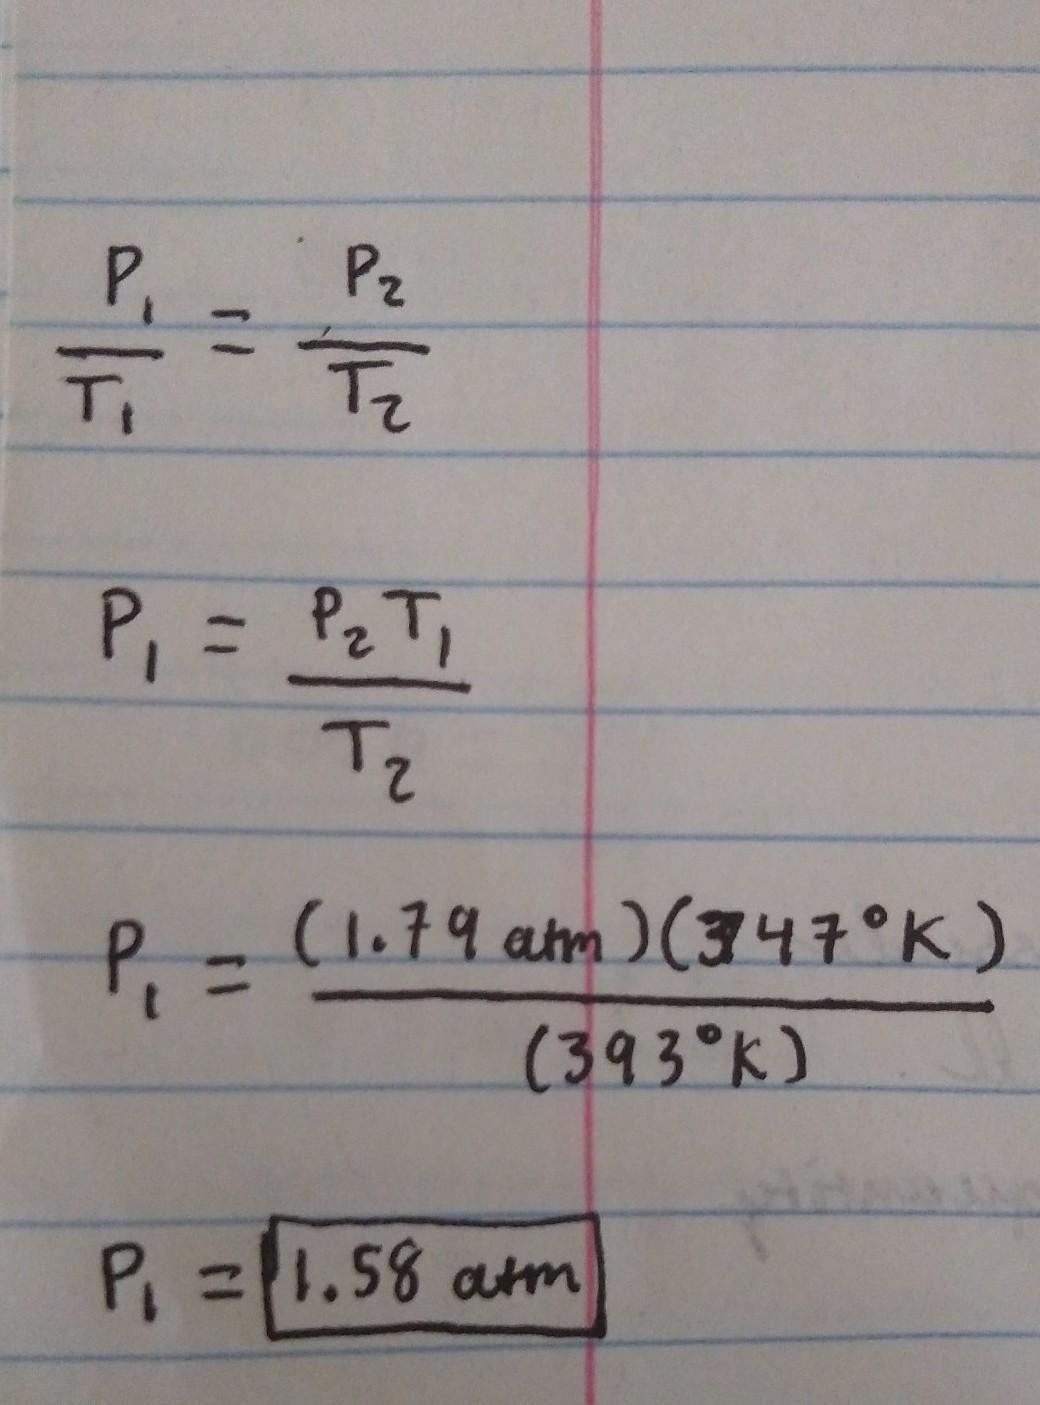 P₁/T₁ = P₂/T₂
P₁ = P₂T₁/T₂
P₁ = (1.79 atm)(347°K)/(393°K)
P₁ = 1.58 atm
quantity